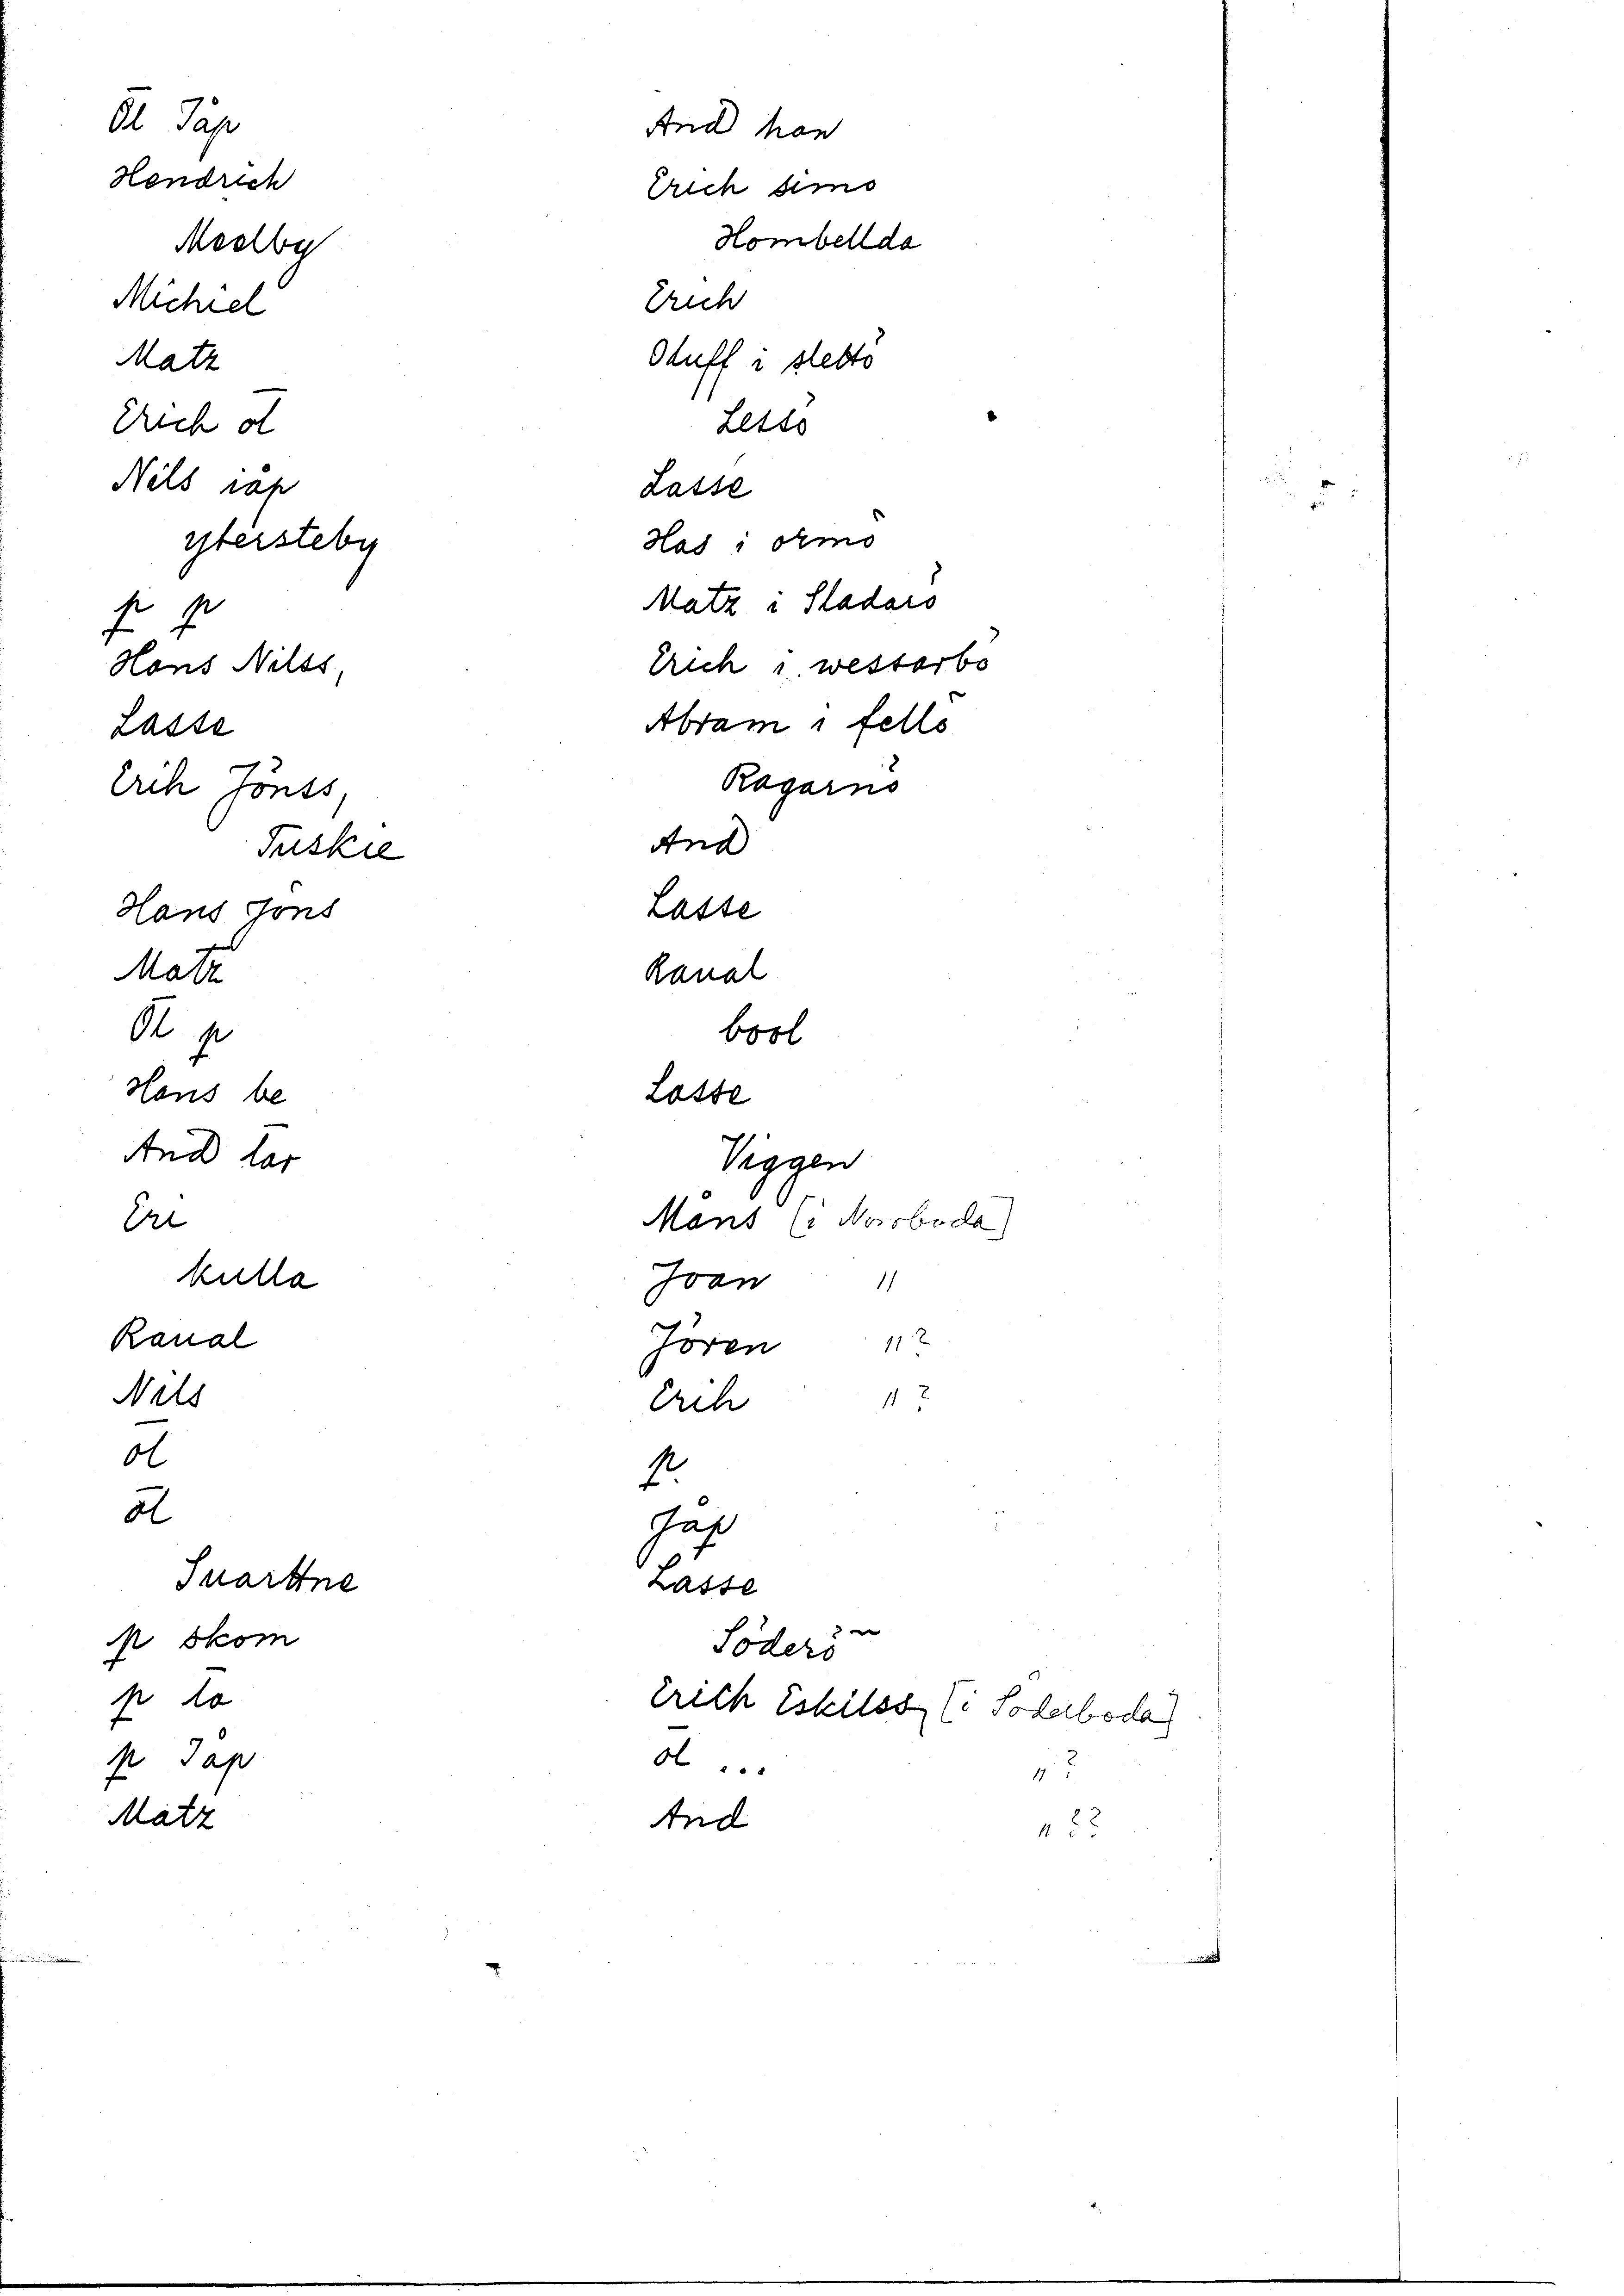 Ōl Jåp
Hendrich
Meelby
Michiel
Matz
Erich ōl
Nils iåp
ytersteby
p p
Hans Nilss,
Lasse
Erih Jönss,
Tuskie
Hans Jöns
Matz
Ōl p
Hans be
And lar
Eri
kulla
Raual
Nils
ōl
ōl
Suartne
p skom
p la
p Jåp
Matz
And han
Erich simo
Hombellda
Erich
Oluff i slettö
Lessö
Lasse
Has i ormö
Matz i Sladarö
Erich i westarbö
Abram i fellö
Ragarnö
And
Lasse
Raual
bool
Lasse
Viggen
Måns (i Norrboda)
Joan "
Jören " ?
Erih " ?
p.
Jåp
Lasse
Söderö
Erich Eskilss, (i Söderboda)
ōl ... " ?
And " ??